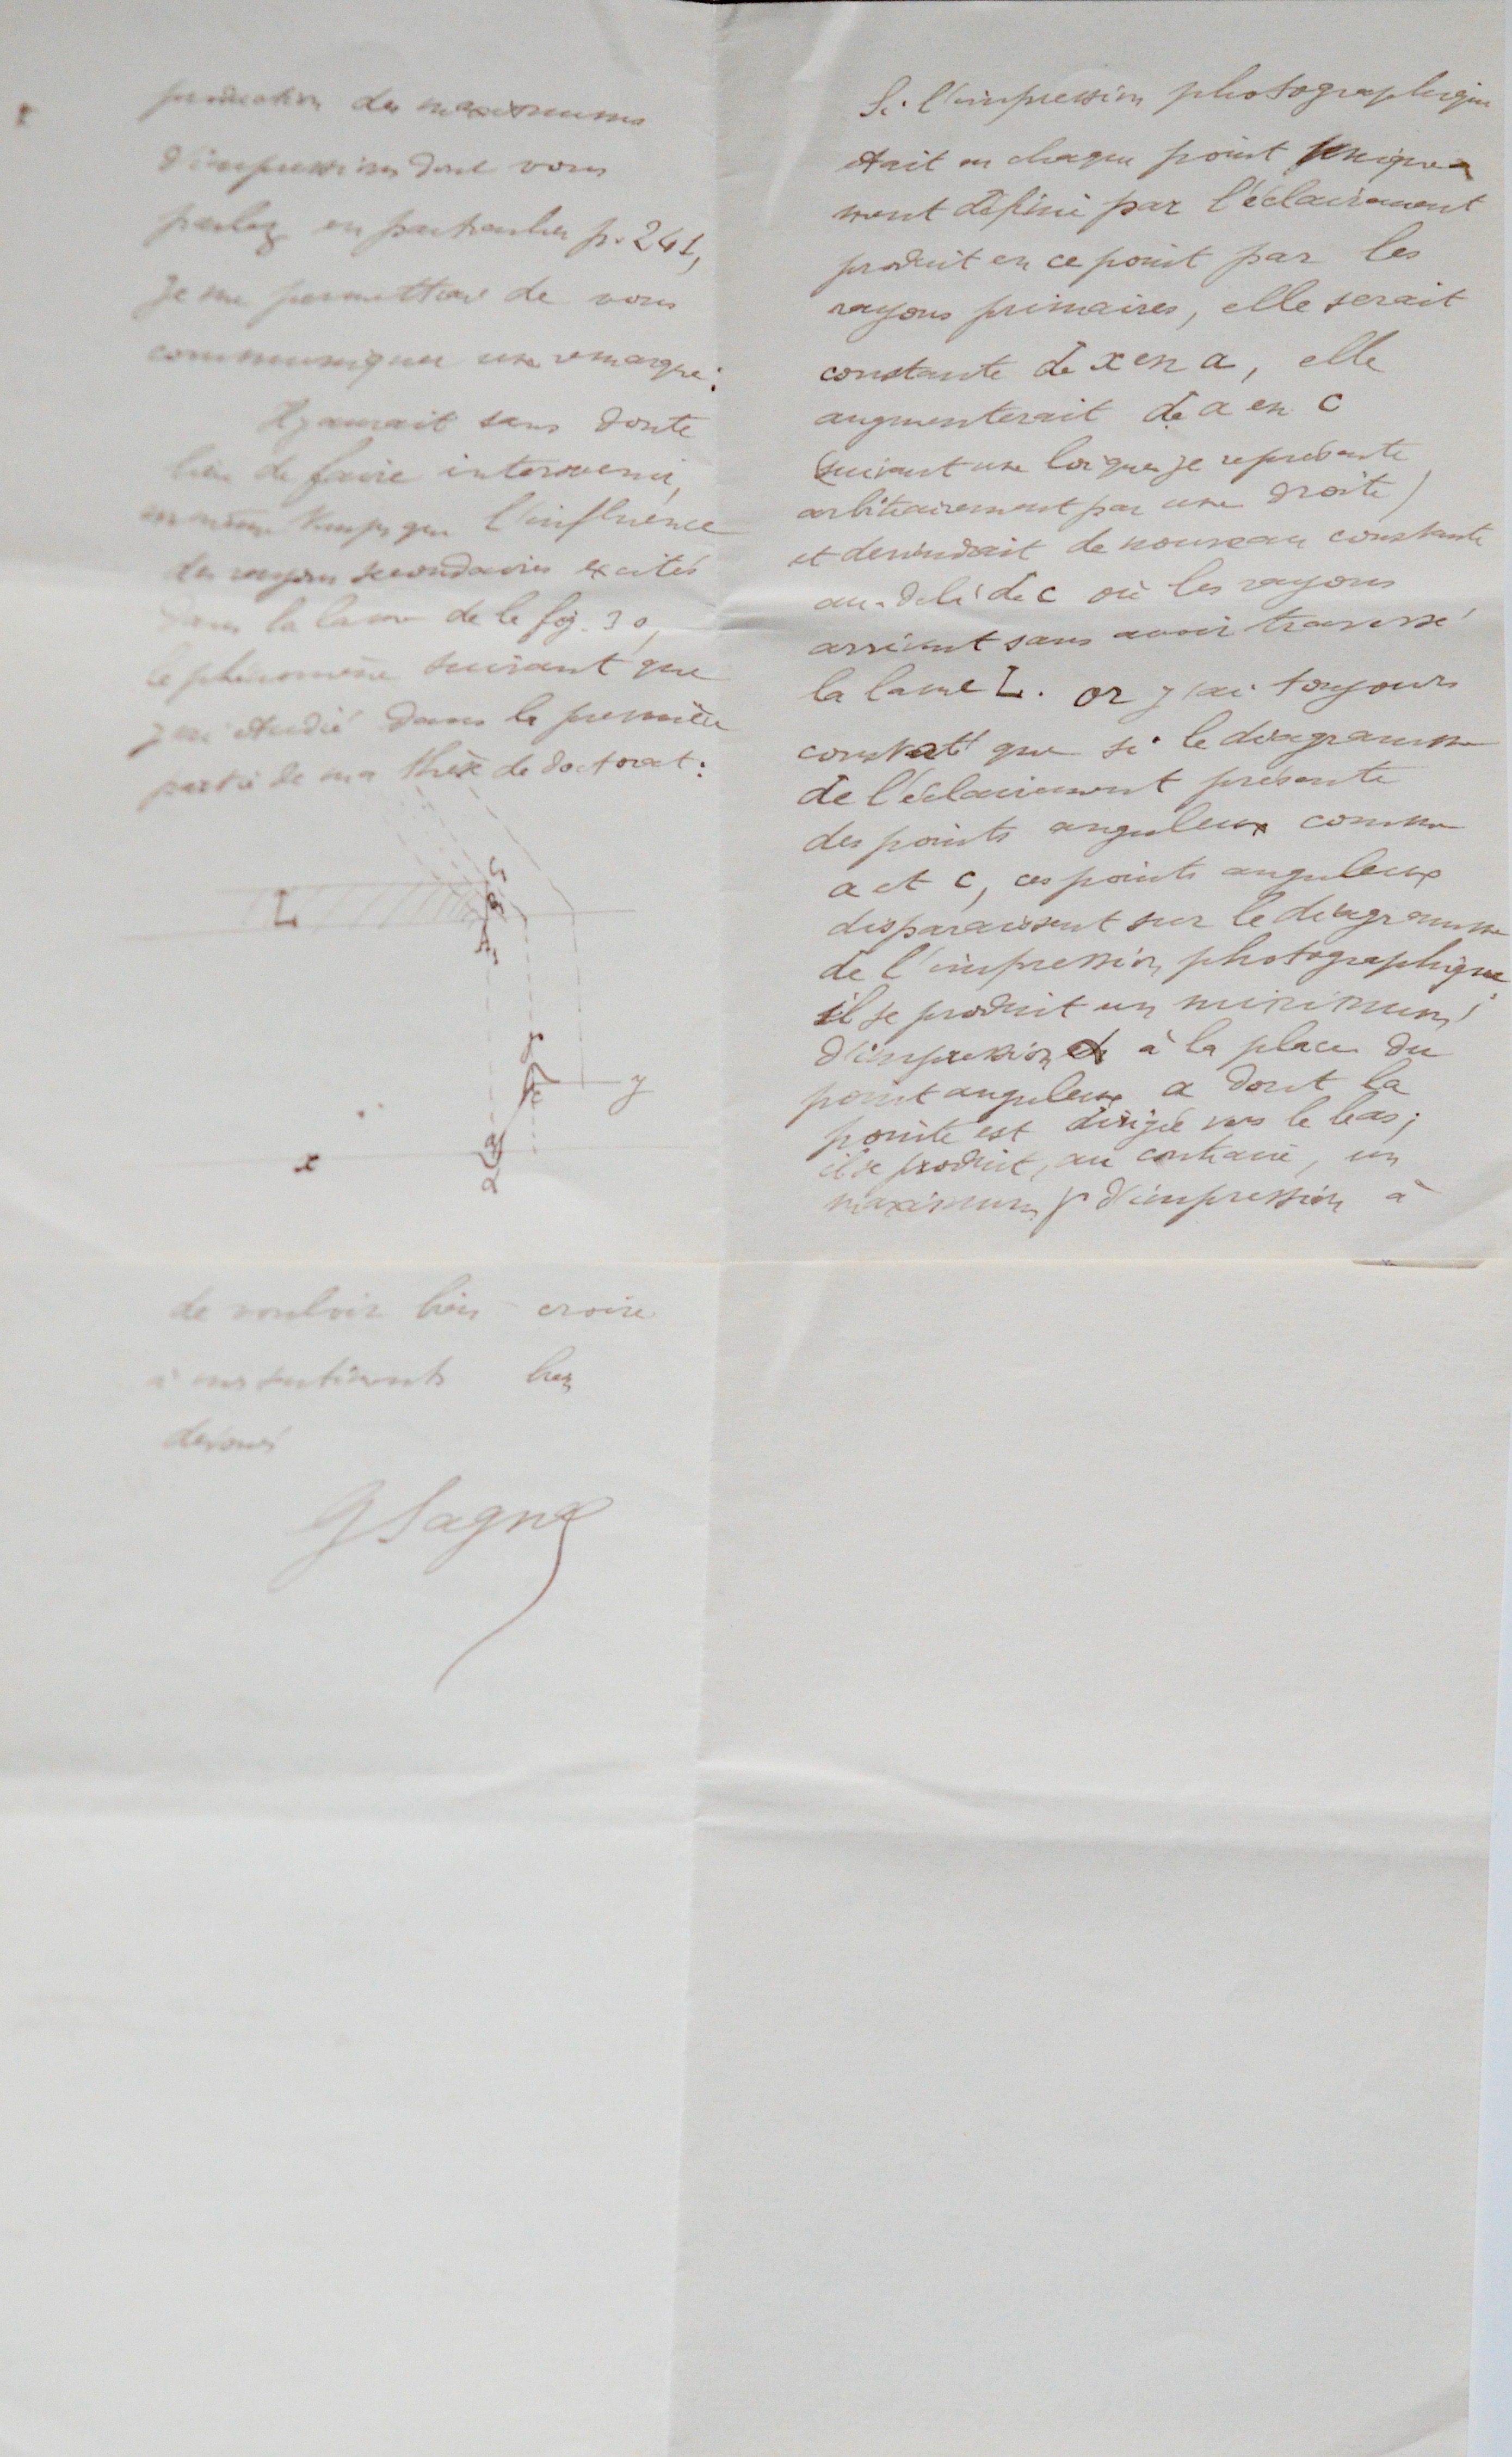 production des maximums
d'impression dont vous
parlez en particulier p. 241,
je me permettrai de vous
communiquer une remarque :
Il y aurait sans doute
lieu de faire intervenir,
en même temps que l'influence
des rayons secondaires excités
dans la lame de la fig. 30,
le phénomène suivant que
j'ai étudié dans la première
partie de ma thèse de doctorat :
L
y
x
de vouloir bien croire
à mes sentiments bien
dévoués
G Sagnac
Si l'impression photographique
était en chaque point unique-
ment défini par l'éclairement
produit en ce point par les
rayons primaires, elle serait
constante de x en a, elle
augmenterait de a en c
(suivant une loi que je représente
arbitrairement par une droite)
et deviendrait de nouveau constante
au-delà de c où les rayons
arrivent sans avoir traversé
la lame L. or j'ai toujours
constaté que si le diagramme
de l'éclairement présente
des points anguleux comme
a et c, ces points anguleux
disparaissent sur le diagramme
de l'impression photographique ;
il se produit un minimum
d'impression α à la place du
point anguleux a dont la
pointe est dirigée vers le bas ;
il se produit, au contraire, un
maximum γ d'impression à